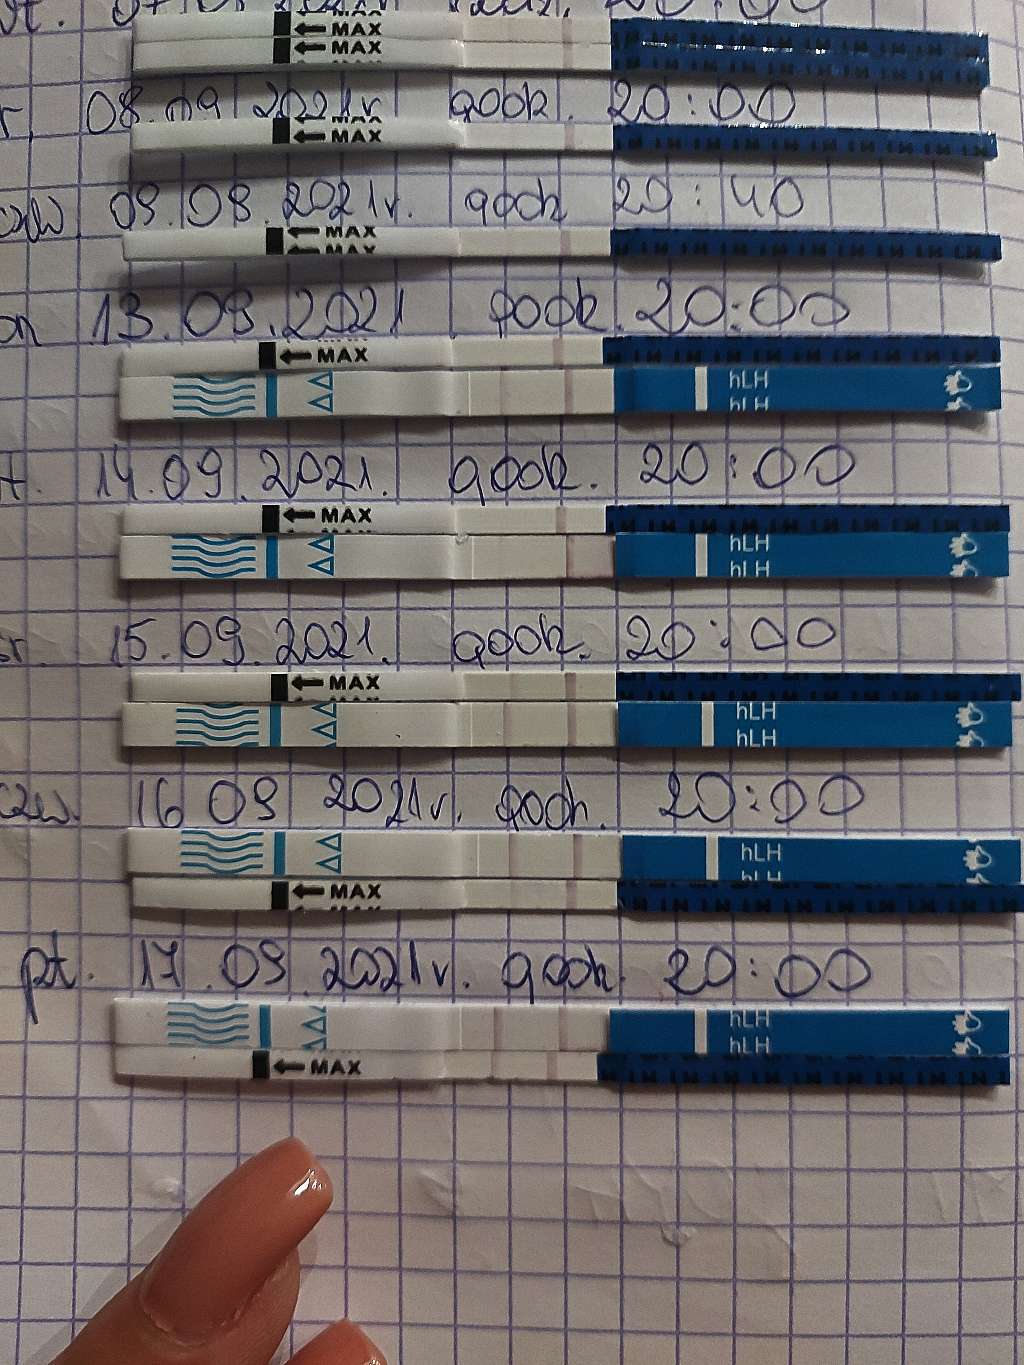 MAX
MAX
08.09 2021r godz. 20:00
MAX
09.09.2021r. godz 20:40
MAX
MAX
13.09.2021 godz. 20:00
MAX
hLH
hLH
14.09.2021. godz. 20:00
MAX
hLH
hLH
15.09.2021. godz. 20:00
MAX
hLH
hLH
czw. 16 09 2021r. godz. 20:00
hLH
hLH
MAX
pt. 17.09.2021r. godz. 20:00
hLH
hLH
MAX